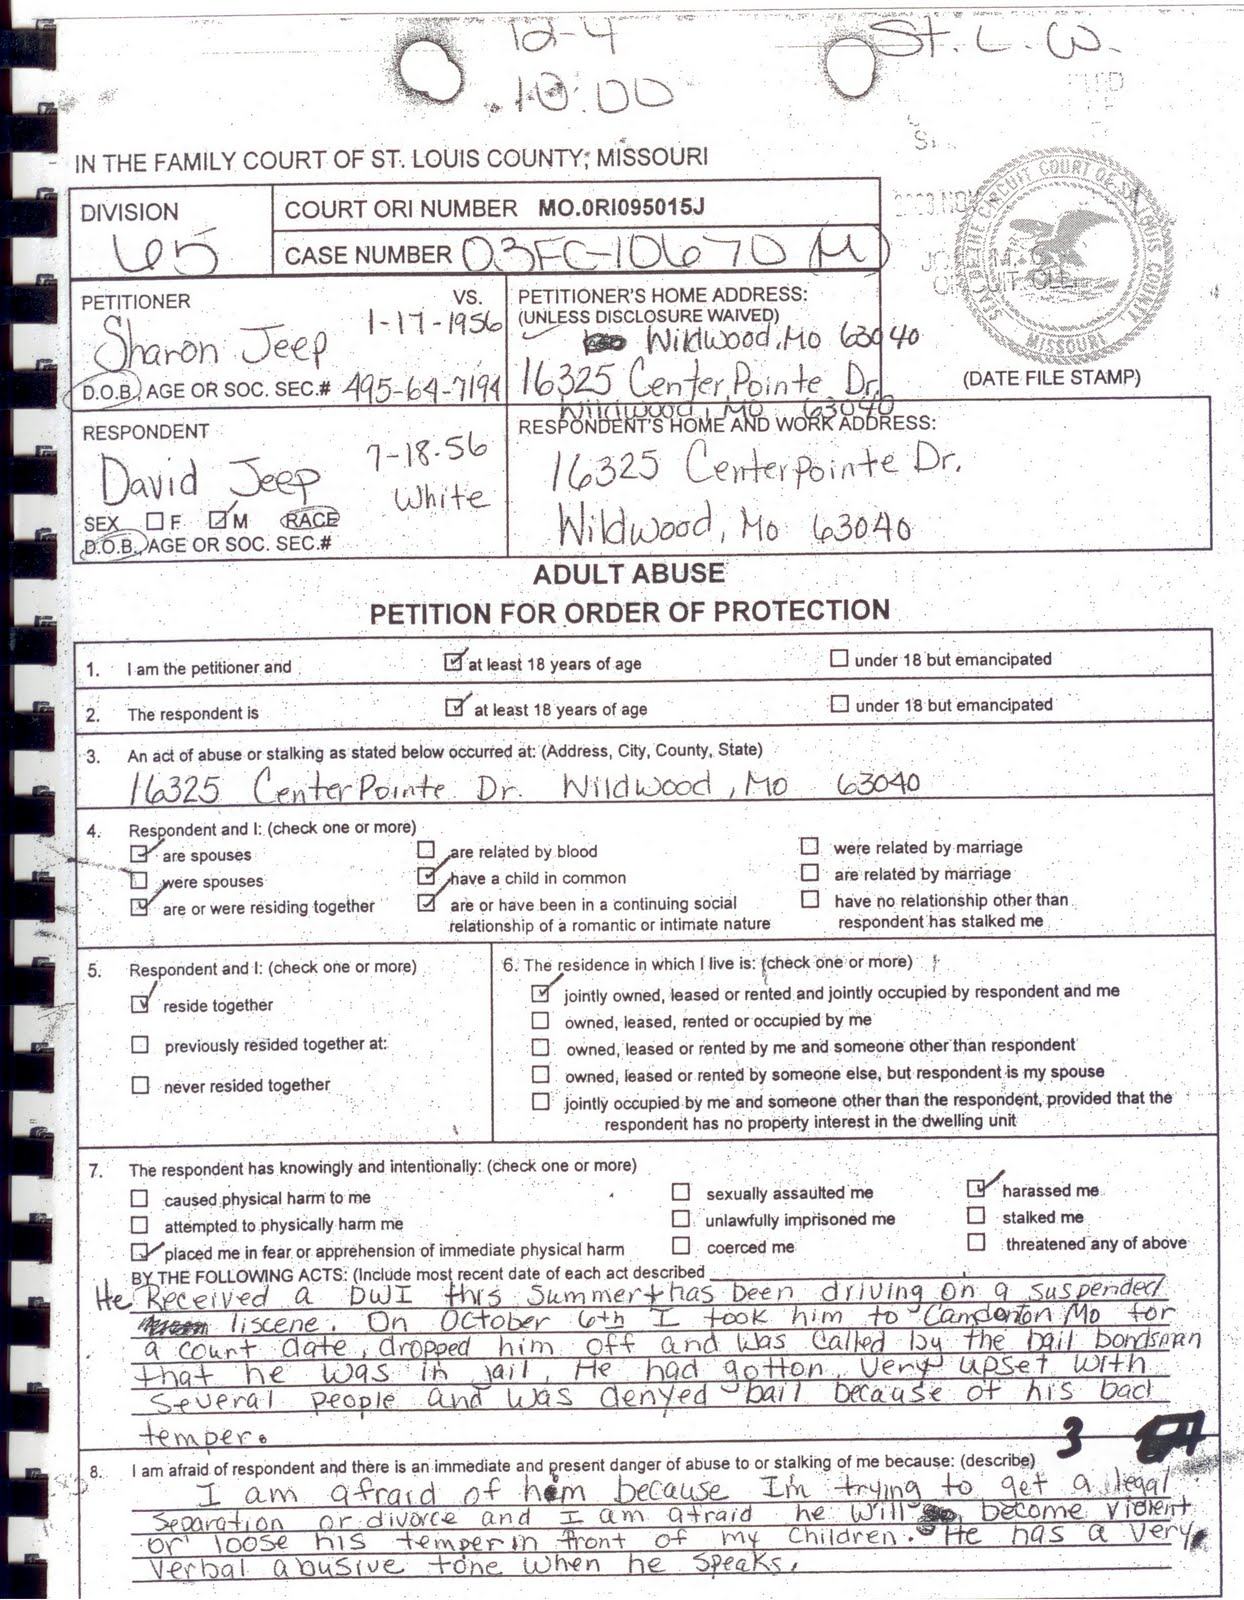 12-4
St. L. W.
10:00
IN THE FAMILY COURT OF ST. LOUIS COUNTY, MISSOURI
DIVISION
65
COURT ORI NUMBER MO.0RI095015J
CASE NUMBER 03FC-10670 M
SEAL THE CIRCUIT COURT OF ST. LOUIS COUNTY MISSOURI
(DATE FILE STAMP)
PETITIONER VS.
Sharon Jeep 1-17-1956
D.O.B., AGE OR SOC. SEC.# 495-64-7194
PETITIONER'S HOME ADDRESS:
(UNLESS DISCLOSURE WAIVED)
Wildwood, Mo 63040
16325 CenterPointe Dr.
Wildwood, Mo 63040
RESPONDENT
David Jeep 7-18-56
White
SEX F M RACE
D.O.B., AGE OR SOC. SEC.#
RESPONDENT'S HOME AND WORK ADDRESS:
16325 Centerpointe Dr.
Wildwood, Mo 63040
ADULT ABUSE
PETITION FOR ORDER OF PROTECTION
1. I am the petitioner and at least 18 years of age under 18 but emancipated
2. The respondent is at least 18 years of age under 18 but emancipated
3. An act of abuse or stalking as stated below occurred at: (Address, City, County, State)
16325 CenterPointe Dr. Wildwood, Mo 63040
4. Respondent and I: (check one or more)
are spouses are related by blood were related by marriage
were spouses have a child in common are related by marriage
are or were residing together are or have been in a continuing social have no relationship other than
relationship of a romantic or intimate nature respondent has stalked me
5. Respondent and I: (check one or more)
reside together
previously resided together at:
never resided together
6. The residence in which I live is: (check one or more)
jointly owned, leased or rented and jointly occupied by respondent and me
owned, leased, rented or occupied by me
owned, leased or rented by me and someone other than respondent
owned, leased or rented by someone else, but respondent is my spouse
jointly occupied by me and someone other than the respondent, provided that the
respondent has no property interest in the dwelling unit
7. The respondent has knowingly and intentionally: (check one or more)
caused physical harm to me sexually assaulted me harassed me
attempted to physically harm me unlawfully imprisoned me stalked me
placed me in fear or apprehension of immediate physical harm coerced me threatened any of above
BY THE FOLLOWING ACTS: (Include most recent date of each act described
He Received a DWI this Summer + has been driving on a suspended
liscene. On October 6th I took him to Camdenton Mo for
a court date, dropped him off and was called by the bail bondsman
that he was in jail. He had gotton very upset with
several people and was denyed bail because of his bad
temper.
3
8. I am afraid of respondent and there is an immediate and present danger of abuse to or stalking of me because: (describe)
I am afraid of him because I'm trying to get a legal
separation or divorce and I am afraid he will become violent
or loose his temper in front of my children. He has a very
verbal abusive tone when he speaks.